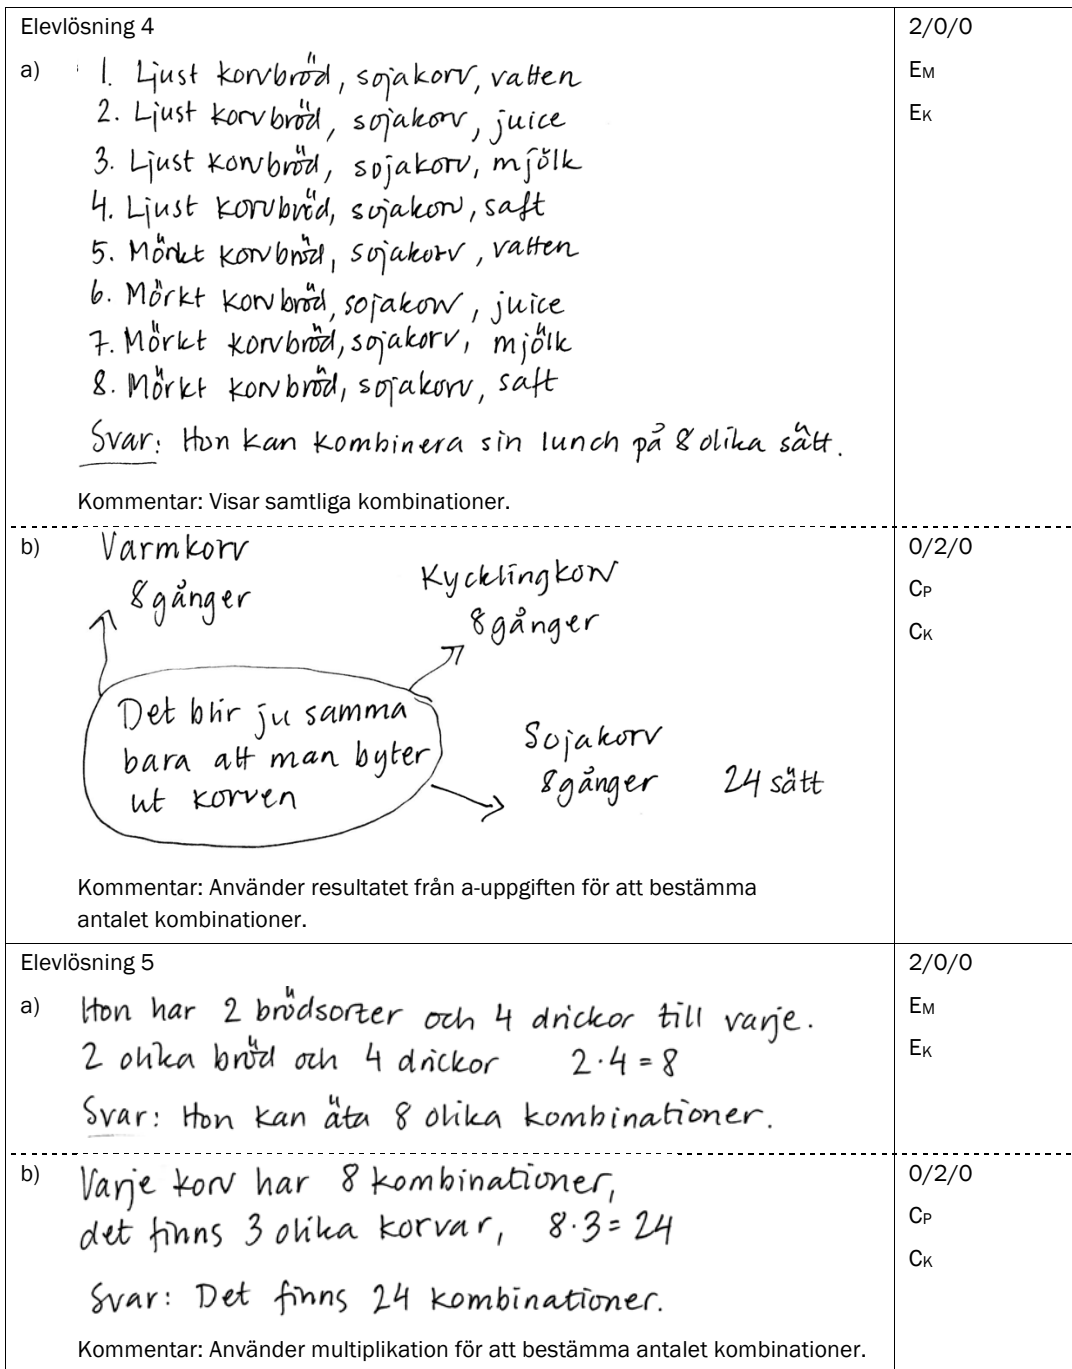 Elevlösning 4
2/0/0
a)
EM
EK
1. Ljust korvbröd, sojakorv, vatten
2. Ljust korvbröd, sojakorv, juice
3. Ljust korvbröd, sojakorv, mjölk
4. Ljust korvbröd, sojakorv, saft
5. Mörkt korvbröd, sojakorv, vatten
6. Mörkt korvbröd, sojakorv, juice
7. Mörkt korvbröd, sojakorv, mjölk
8. Mörkt korvbröd, sojakorv, saft
Svar: Hon kan kombinera sin lunch på 8 olika sätt.
Kommentar: Visar samtliga kombinationer.
b)
0/2/0
CP
CK
Varmkorv
8 gånger
Kycklingkorv
8 gånger
Det blir ju samma
bara att man byter
ut korven
Sojakorv
8 gånger
24 sätt
Kommentar: Använder resultatet från a-uppgiften för att bestämma
antalet kombinationer.
Elevlösning 5
2/0/0
a)
EM
EK
Hon har 2 brödsorter och 4 drickor till varje.
2 olika bröd och 4 drickor 2·4=8
Svar: Hon kan äta 8 olika kombinationer.
b)
0/2/0
CP
CK
Varje korv har 8 kombinationer,
det finns 3 olika korvar, 8·3=24
Svar: Det finns 24 kombinationer.
Kommentar: Använder multiplikation för att bestämma antalet kombinationer.